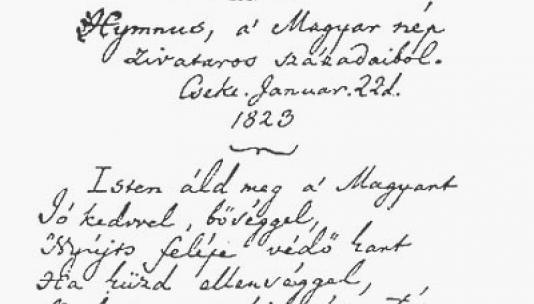 Hymnus, a' Magyar nép
zivataros századaiból.
Cseke. Januar. 22d.
1823
Isten áld meg a' Magyart
Jó kedvvel, bőséggel,
Nyújts feléje védő kart
Ha küzd ellenséggel,